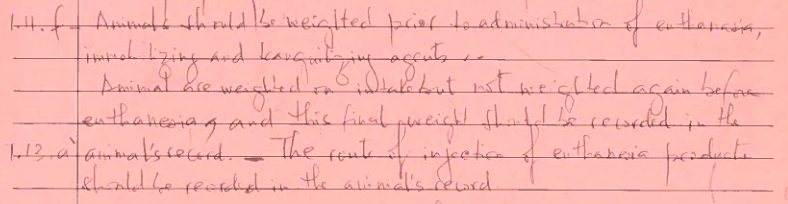 1.11.f - Animals should be weighted prior to administration of euthanasia,
immobilizing and tranquilizing agents ..
Animal are weighted on intake but not weighted again before
euthanesia, and this final weight should be recorded in the
1.13.a animal's record. - The route of injection of euthanesia products
should be recorded in the animal's record